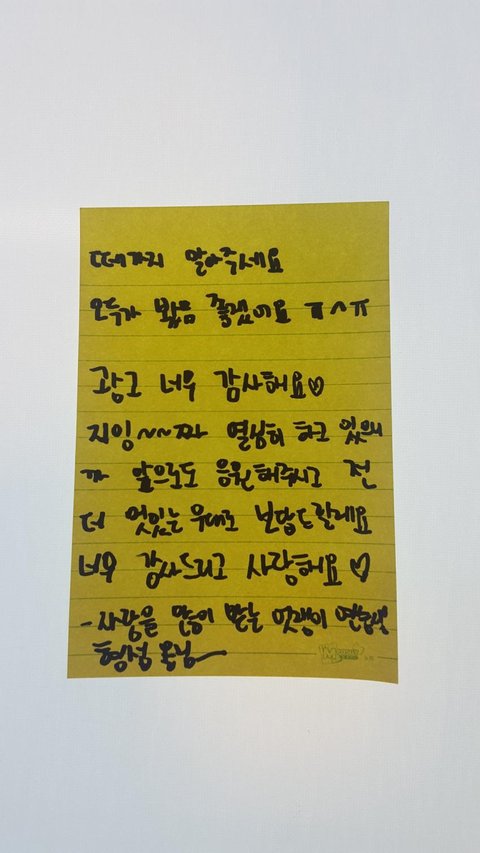 때까지 말아주세요
오두가 봤음 좋겠어요 ㅠㅅㅠ
광고 너무 감사해요♡
지잉~~짜 열심히 하고 있으니
까 앞으로도 응원해주시고 전
더 멋있는 무대로 보답드릴게요
너무 감사드리고 사랑해요♡
-사랑을 많이 받는
형성 올님